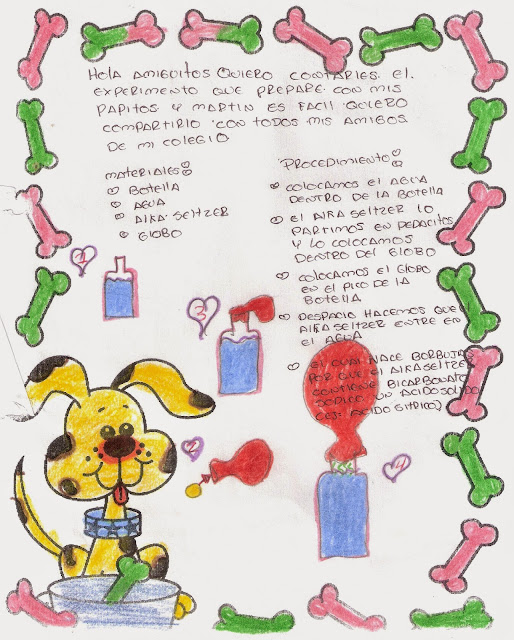 Hola amiguitos quiero contarles el
experimento que prepare con mis
papitos y Martin es facil quiero
compartirlo con todos mis amigos
de mi colegio
materiales
Botella
Agua
Alka-Seltzer
Globo
Procedimiento
colocamos el agua
dentro de la botella
el Alka Seltzer lo
partimos en pedacitos
y lo colocamos
dentro del globo
colocamos el globo
en el pico de la
botella
despacio hacemos que
Alka Seltzer entre en
el agua
el cual hace
por que el Alka Seltzer
contiene bicarbonato
sodico un acido solido
(es: acido sitrico)
1
3
2
4